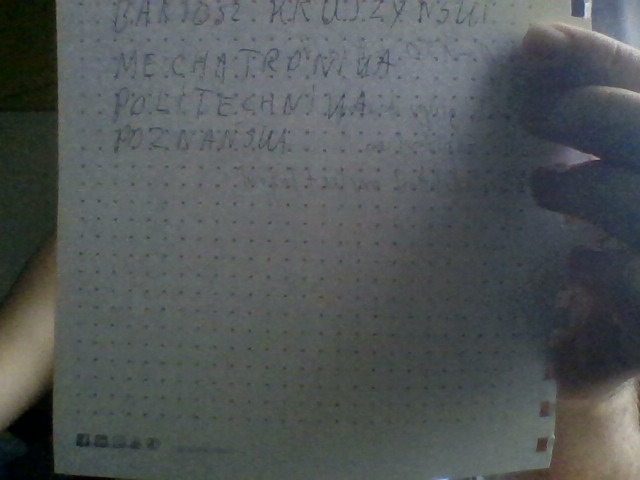 BARTOSZ KRUSZYŃSKI
MECHATRONIKA
POLITECHNIKA
POZNAŃSKI